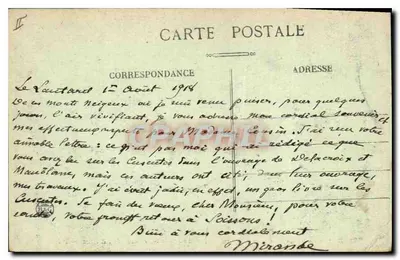 II
CARTE POSTALE
CORRESPONDANCE
ADRESSE
Le Lautaret 1er Août 1918
De ces monts neigeux où je suis venu puiser, pour quelques
jours, l'air vivifiant, je vous adresse mon cordial souvenir et
mes pour Madame J'ai eu votre
aimable lettre: ce moi qui ai rédigé ce que
vous avez lu sur les Cuscutes dans l'ouvrage de Delacroix et
Maublanc, mais ces auteurs ont cité, dans leur ouvrage,
mes travaux. J'ai écrit jadis, en effet, un gros livre sur les
Cuscutes. Je fais des vœux, cher Monsieur, pour votre
santé, votre prompt retour à Soissons!
Bien à vous cordialement
Mirande